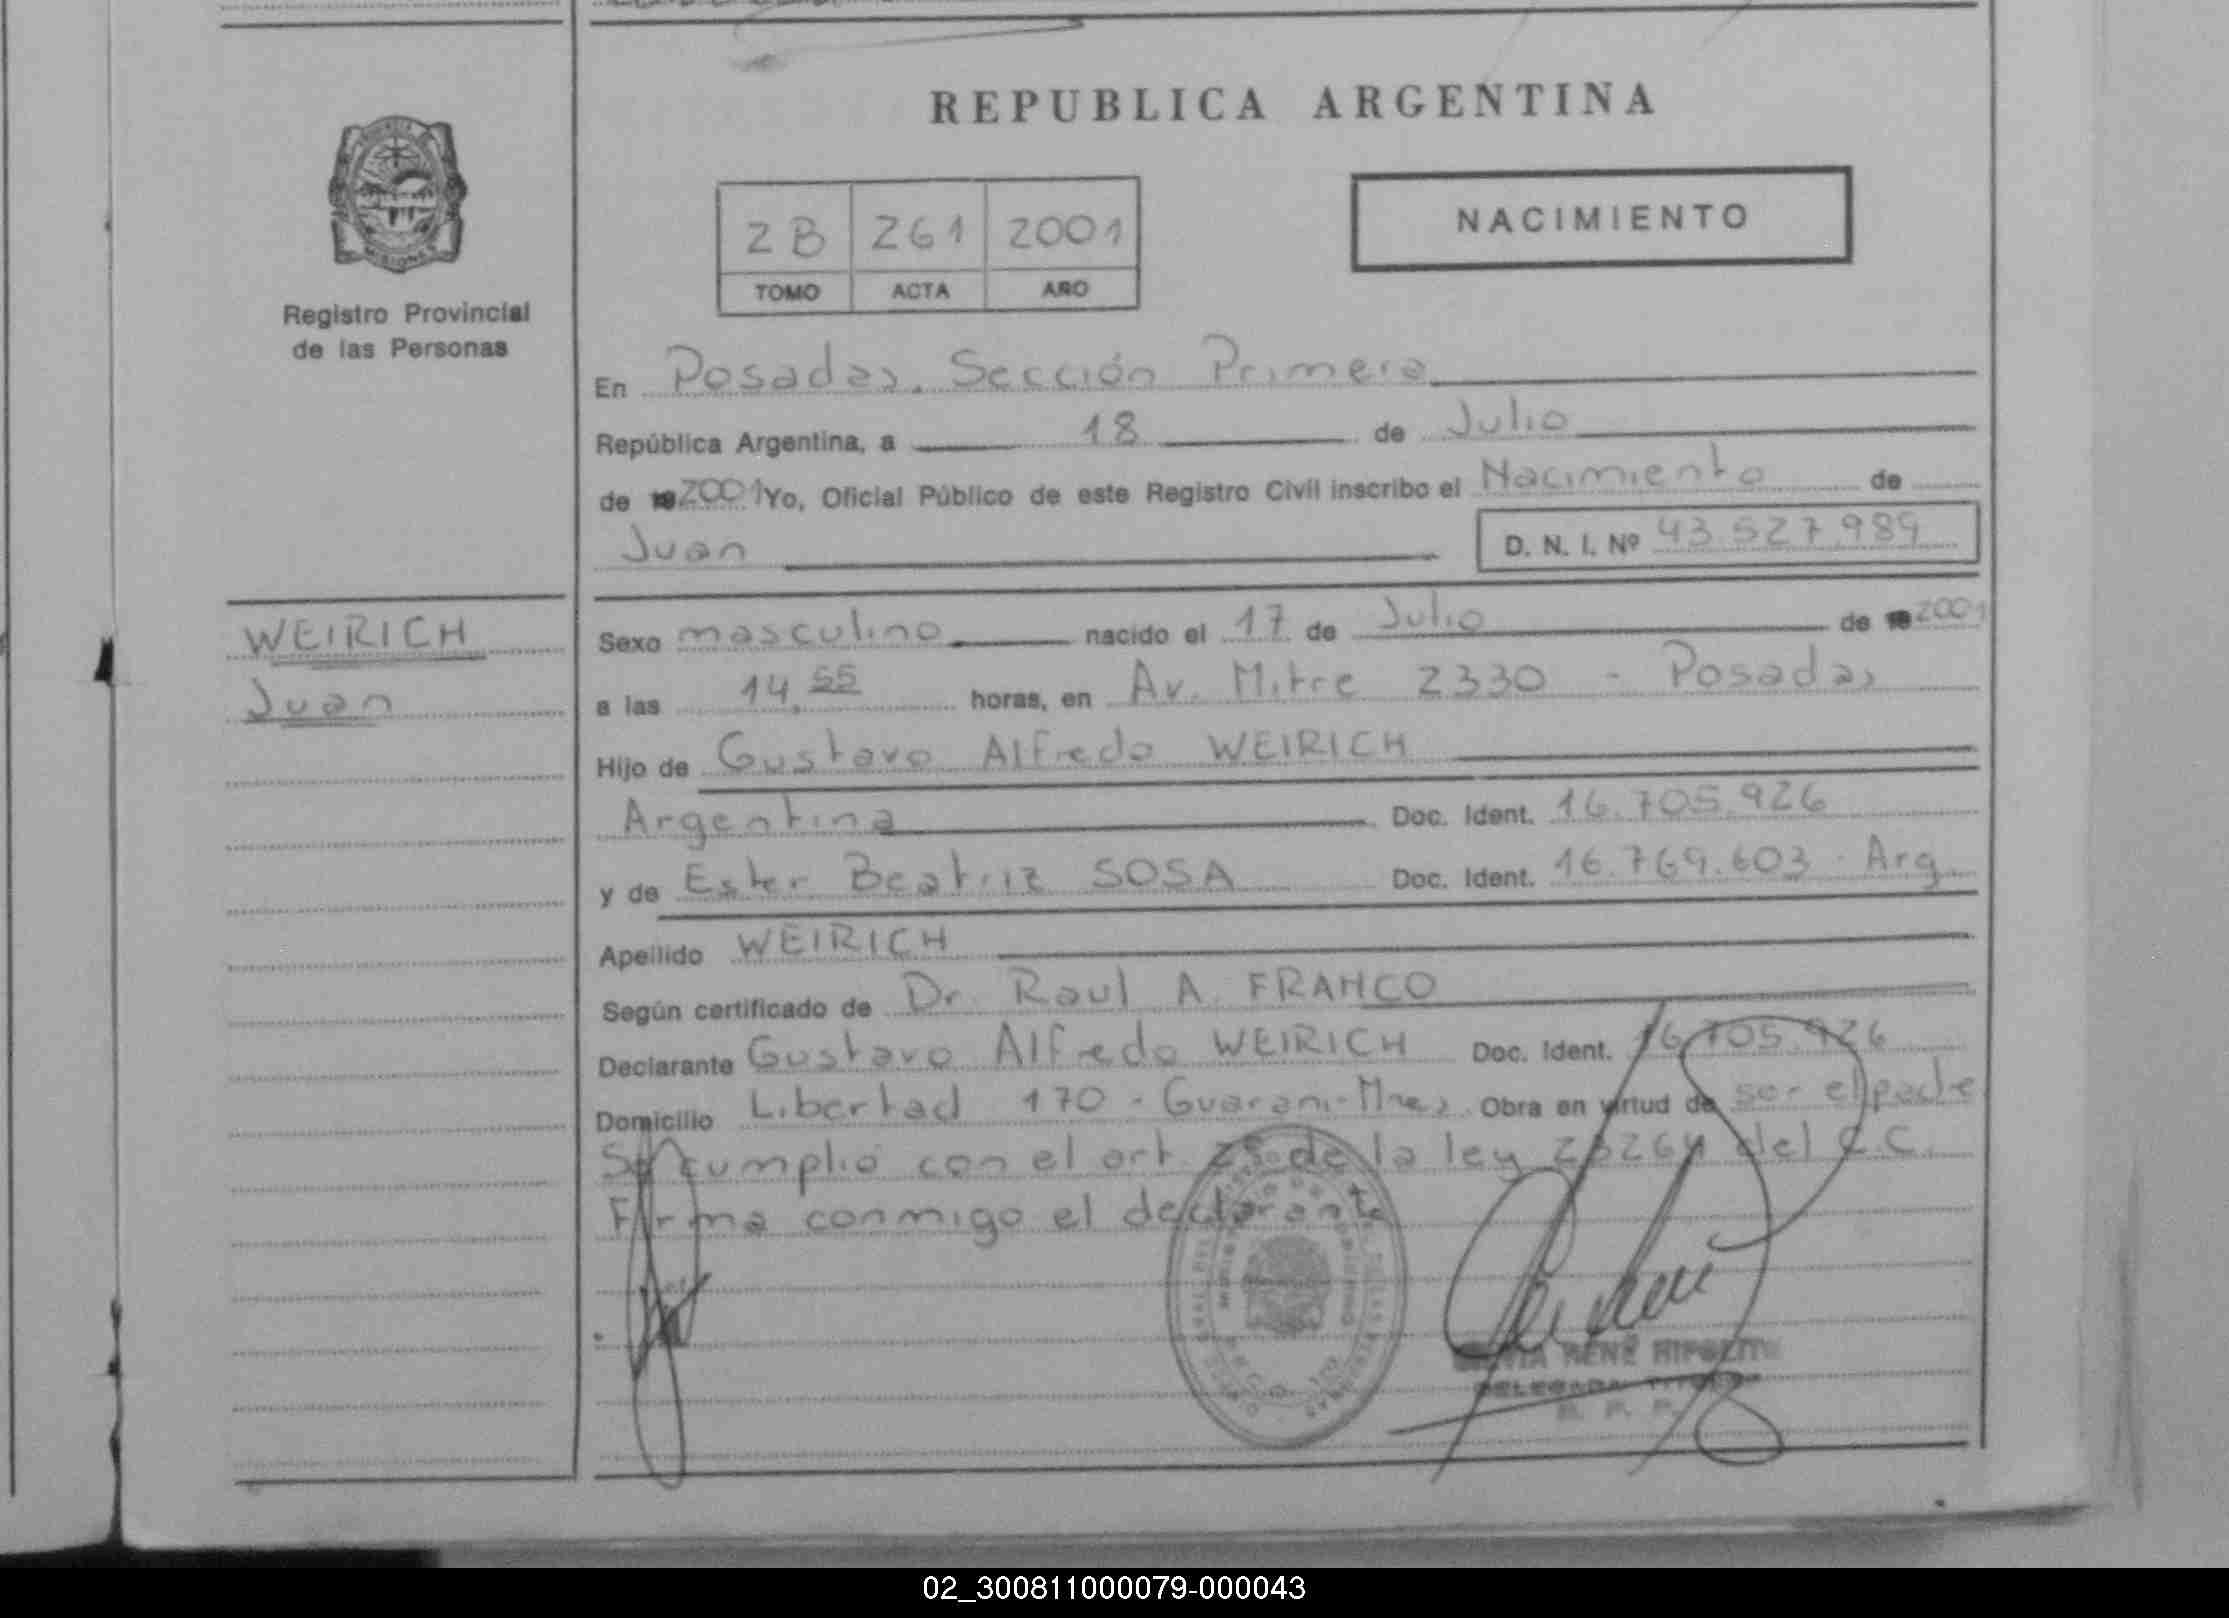 REPUBLICA ARGENTINA
PROVINCIA DE MISIONES
Registro Provincial
de las Personas
2B 261 2001
TOMO ACTA AÑO
NACIMIENTO
En Posadas. Sección Primera
República Argentina, a 18 de Julio
de 19 2001 Yo, Oficial Público de este Registro Civil inscribo el Nacimiento de
Juan D. N. I. Nº 43.527.989
WEIRICH
Juan
Sexo masculino nacido el 17 de Julio de 19 2001
a las 14.55 horas, en Av. Mitre 2330 - Posadas
Hijo de Gustavo Alfredo WEIRICH
Argentina Doc. Ident. 16.705.926
y de Ester Beatriz SOSA Doc. Ident. 16.769.603 . Arg.
Apellido WEIRICH
Según certificado de Dr. Raul A. FRANCO
Declarante Gustavo Alfredo WEIRICH Doc. Ident. 16.705.926
Domicilio Libertad 170 - Guarani-Mnes Obra en virtud de ser el padre
Se cumplió con el art. 25 de la ley 23264 del C.C.
Firma conmigo el declarante
RENÉ HIPOLITO
DELEGADA TITULAR
R. P. P.
02_300811000079-000043